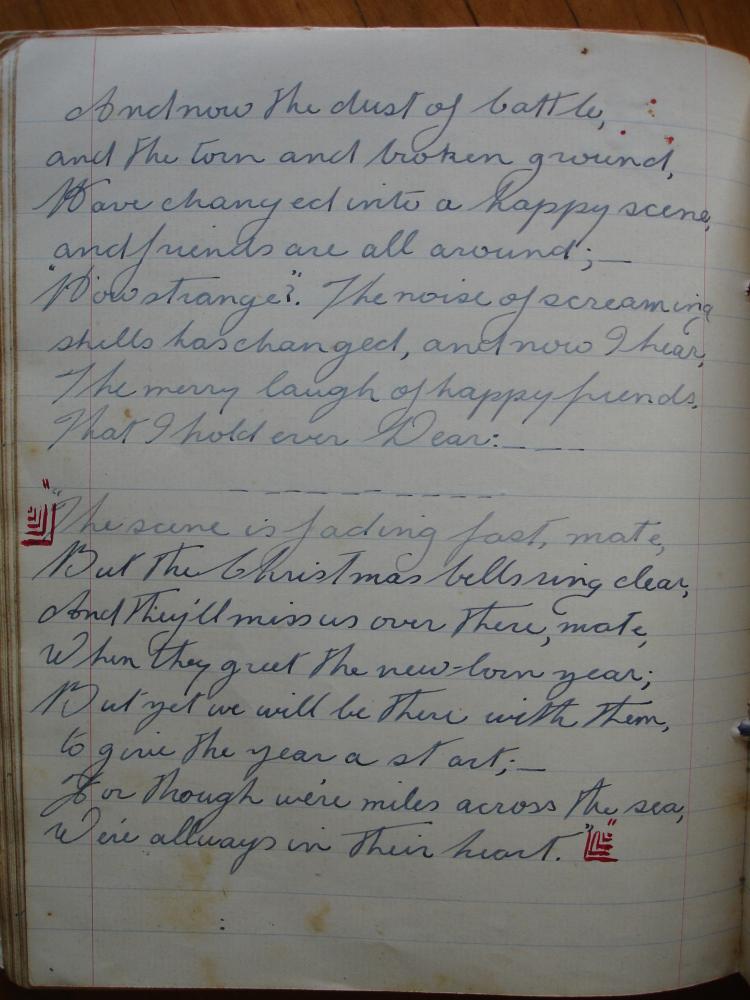 And now the dust of battle,
and the torn and broken ground,
Have changed into a happy scene,
and friends are all around;—
"How strange". The noise of screaming
shells has changed, and now I hear,
The merry laugh of happy friends.
That I hold ever Dear:— — —
"The scene is fading fast, mate,
But the Christmas bells ring clear,
And they'll miss us over there, mate,
When they greet the new-born year;
But yet we will be there with them,
to give the year a start;—
For though we're miles across the sea,
We're allways in their heart."